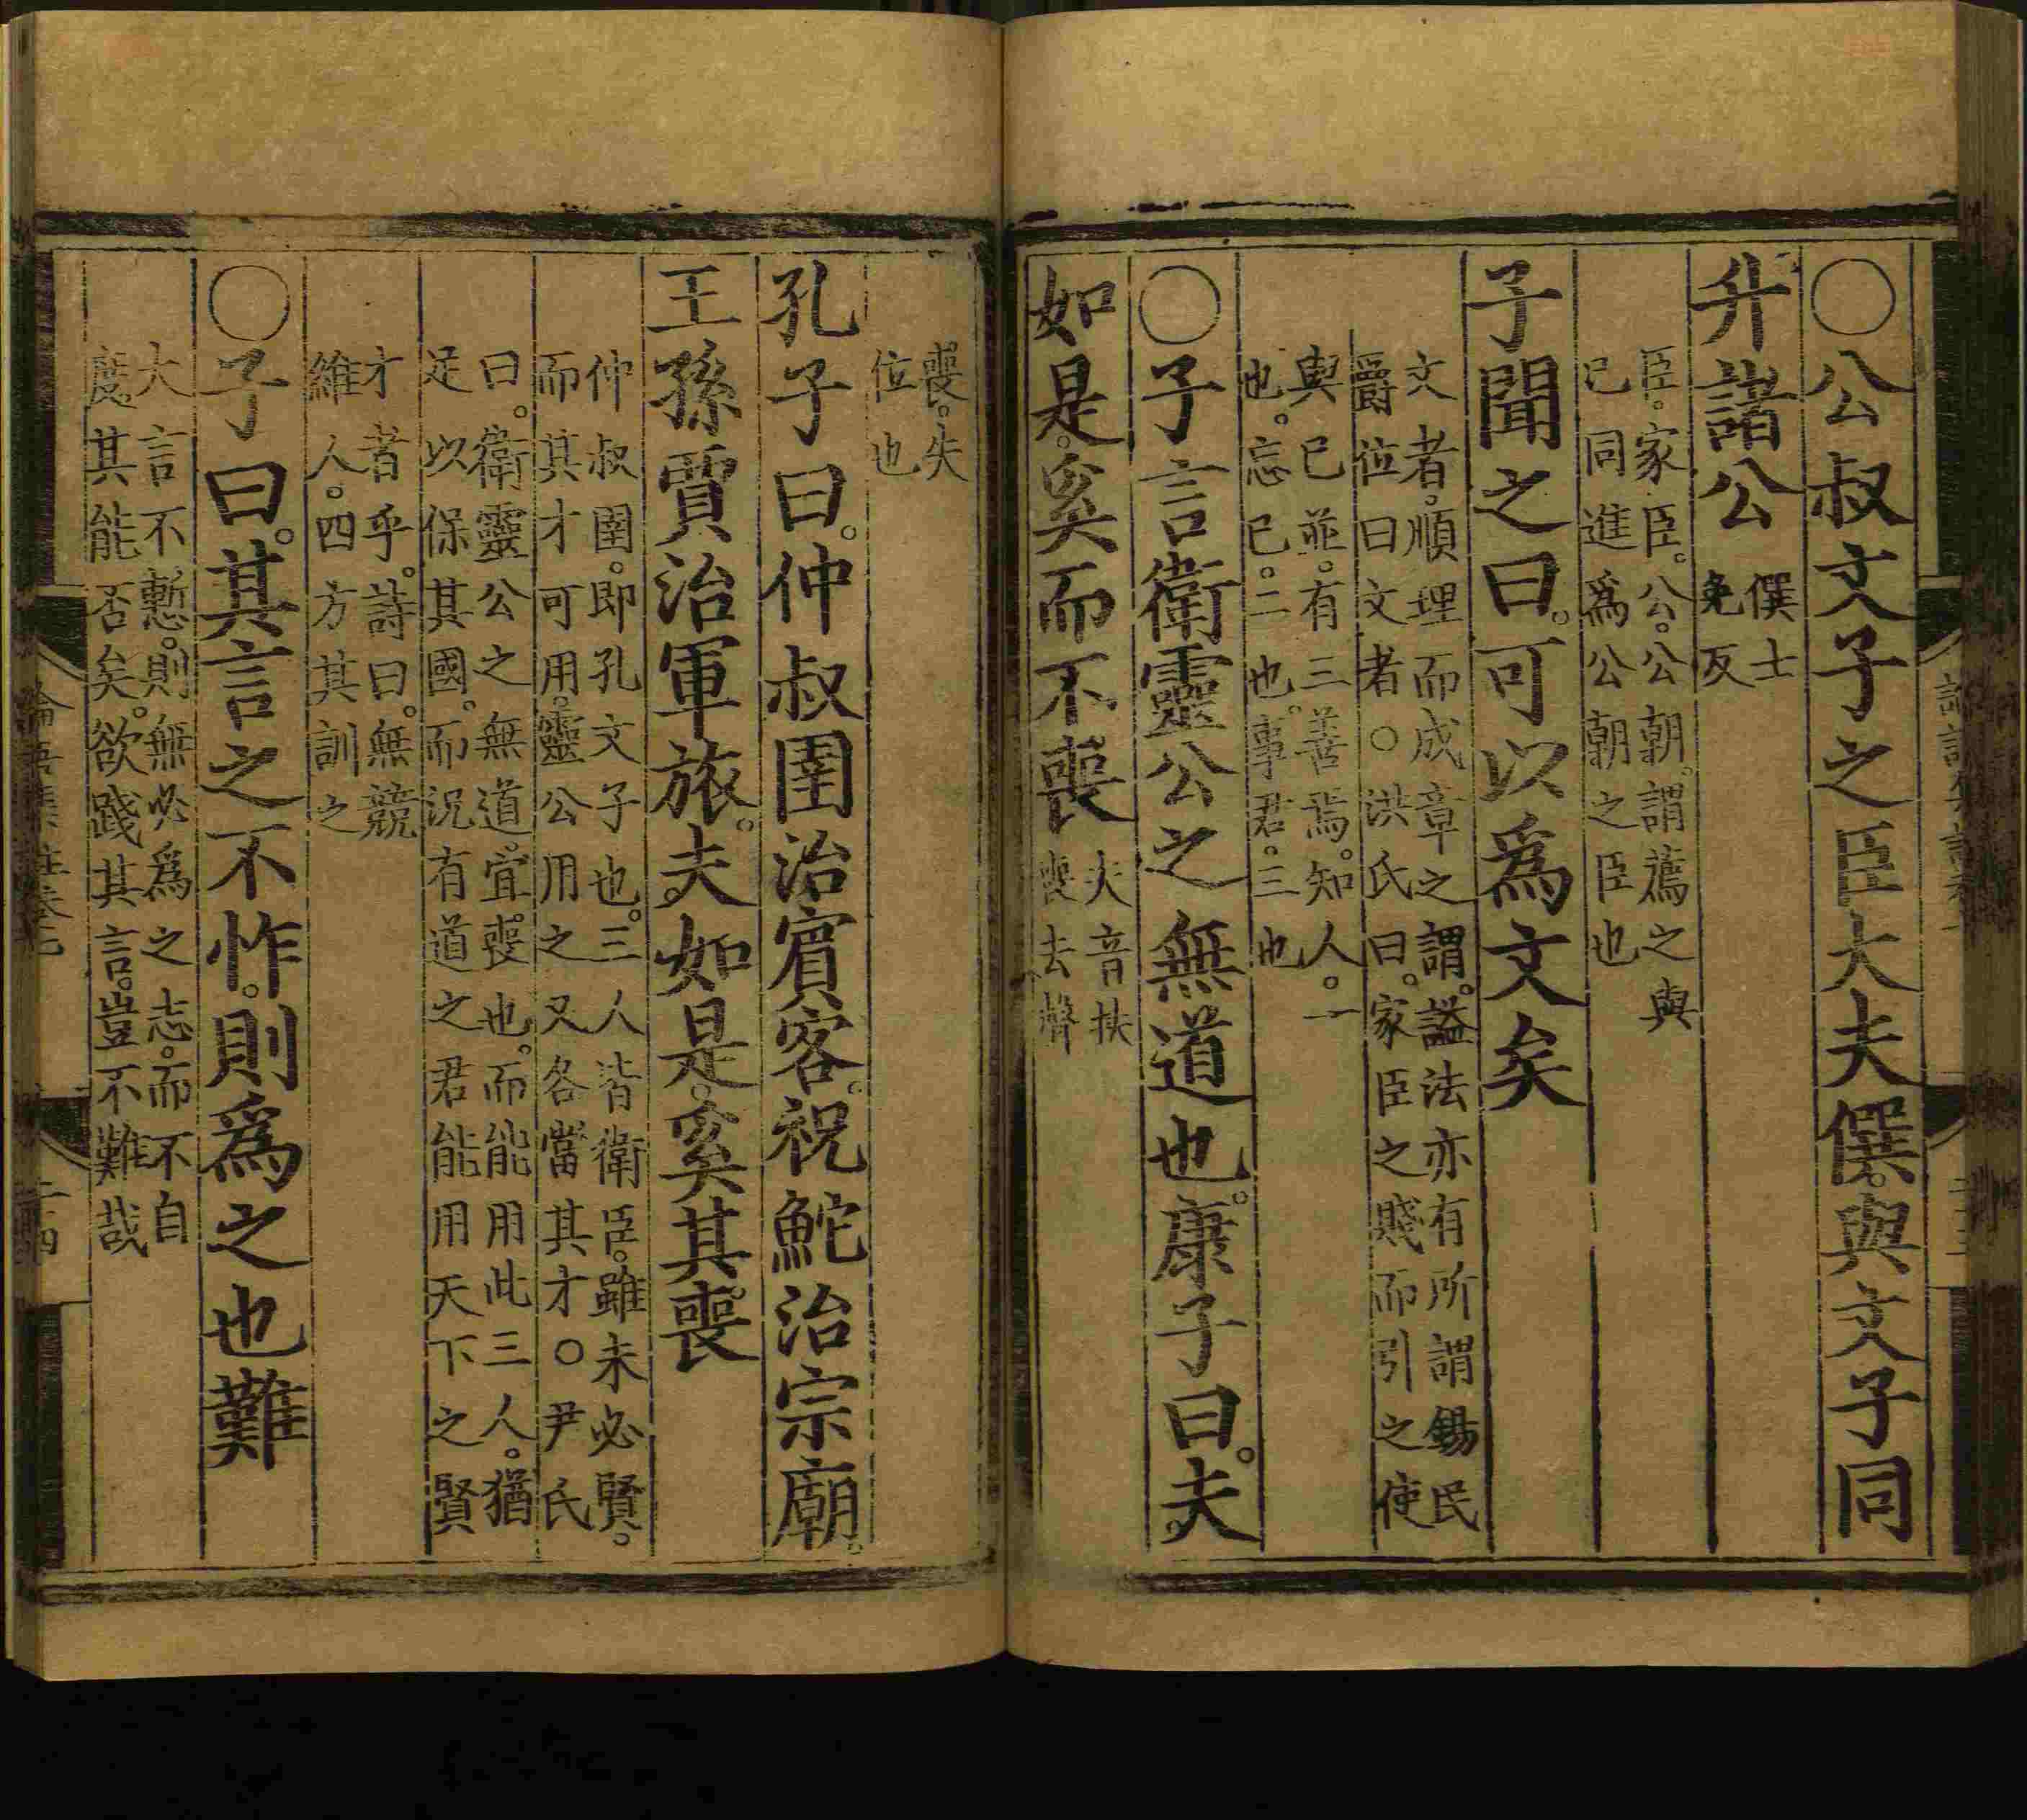 ○公叔文子之臣大夫僎。與文子同
升諸公 僎士
免反
臣。家臣。公。公朝。謂薦之與
己同進爲公朝之臣也
子聞之曰。可以爲文矣
文者。順理而成章之謂。諡法亦有所謂錫民
爵位曰文者○洪氏曰。家臣之賤而引之使
與己並。有三善焉。知人。一
也。忘己。二也。事君。三也
○子言衛靈公之無道也。康子曰。夫
如是。奚而不喪 夫音扶
喪去聲
喪。失
位也
孔子曰。仲叔圉治賓客。祝鮀治宗廟。
王孫賈治軍旅。夫如是。奚其喪
仲叔圉。即孔文子也。三人皆衛臣。雖未必賢。
而其才可用。靈公用之又各當其才○尹氏
曰。衛靈公之無道。宜喪也。而能用此三人。猶
足以保其國。而況有道之君能用天下之賢
才者乎。詩曰。無競
維人。四方其訓之
○子曰。其言之不怍。則爲之也難
大言不慙。則無必爲之志。而不自
度其能否矣。欲踐其言。豈不難哉